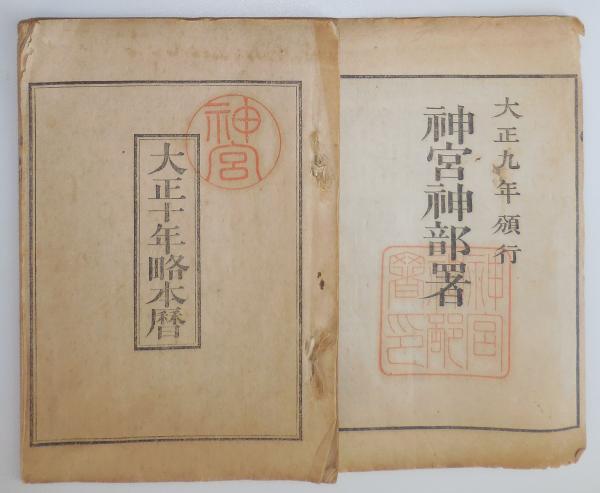 大正九年頒行
神宮神部署
神宮神部署印
神宮
大正十年略本暦